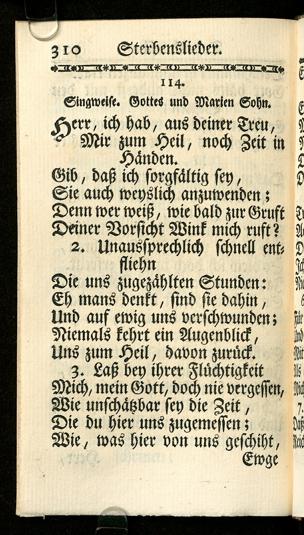 310 Sterbenslieder.
114.
Singweise. Gottes und Marien Sohn.
Herr, ich hab, aus deiner Treu,
Mir zum Heil, noch Zeit in
Händen.
Gib, daß ich sorgfältig sey,
Sie auch weyslich anzuwenden;
Denn wer weiß, wie bald zur Gruft
Deiner Vorsicht Wink mich ruft?
2. Unaussprechlich schnell ent-
fliehn
Die uns zugezählten Stunden:
Eh mans denkt, sind sie dahin,
Und auf ewig uns verschwunden;
Niemals kehrt ein Augenblick,
Uns zum Heil, davon zurück.
3. Laß bey ihrer Flüchtigkeit
Mich, mein Gott, doch nie vergessen,
Wie unschätzbar sey die Zeit,
Die du hier uns zugemessen;
Wie, was hier von uns geschiht,
Ewge